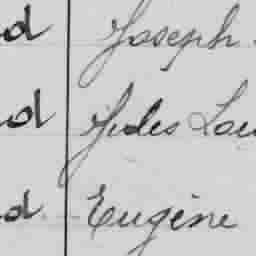 d Joseph
d Jules Lou
d Eugène